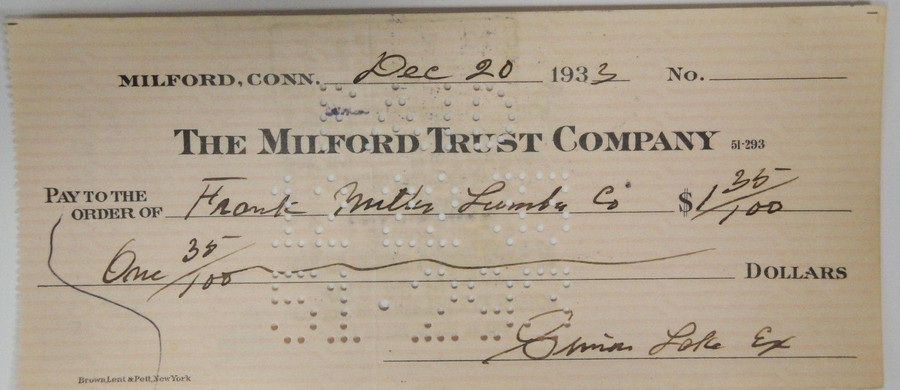 MILFORD, CONN. Dec 20 1933 No.
THE MILFORD TRUST COMPANY 51-293
PAY TO THE ORDER OF Frank Miller Lumber Co $1 35/100
One 35/100 DOLLARS
Lake Ex
Brown, Lent & Pett, New York